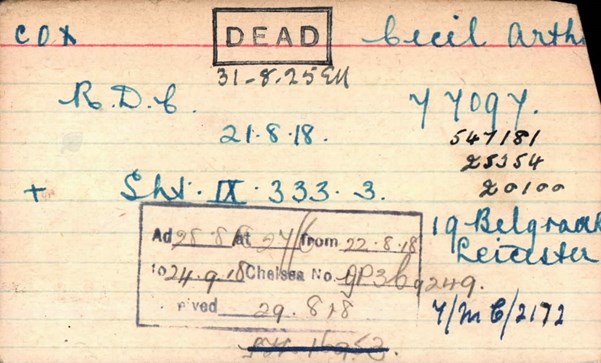 COX DEAD Cecil Arth
31-8-25
R.D.C. 77097.
21.8.18. 547181
25354
+ Sht. IX. 333. 3. 20100
19 Belgrave
Ad 28.8.18 at 27/6 from 22.8.18 Leicester
to 24.9.18 Chelsea No. 9249.
ived 29.8.18 7/MC/2172